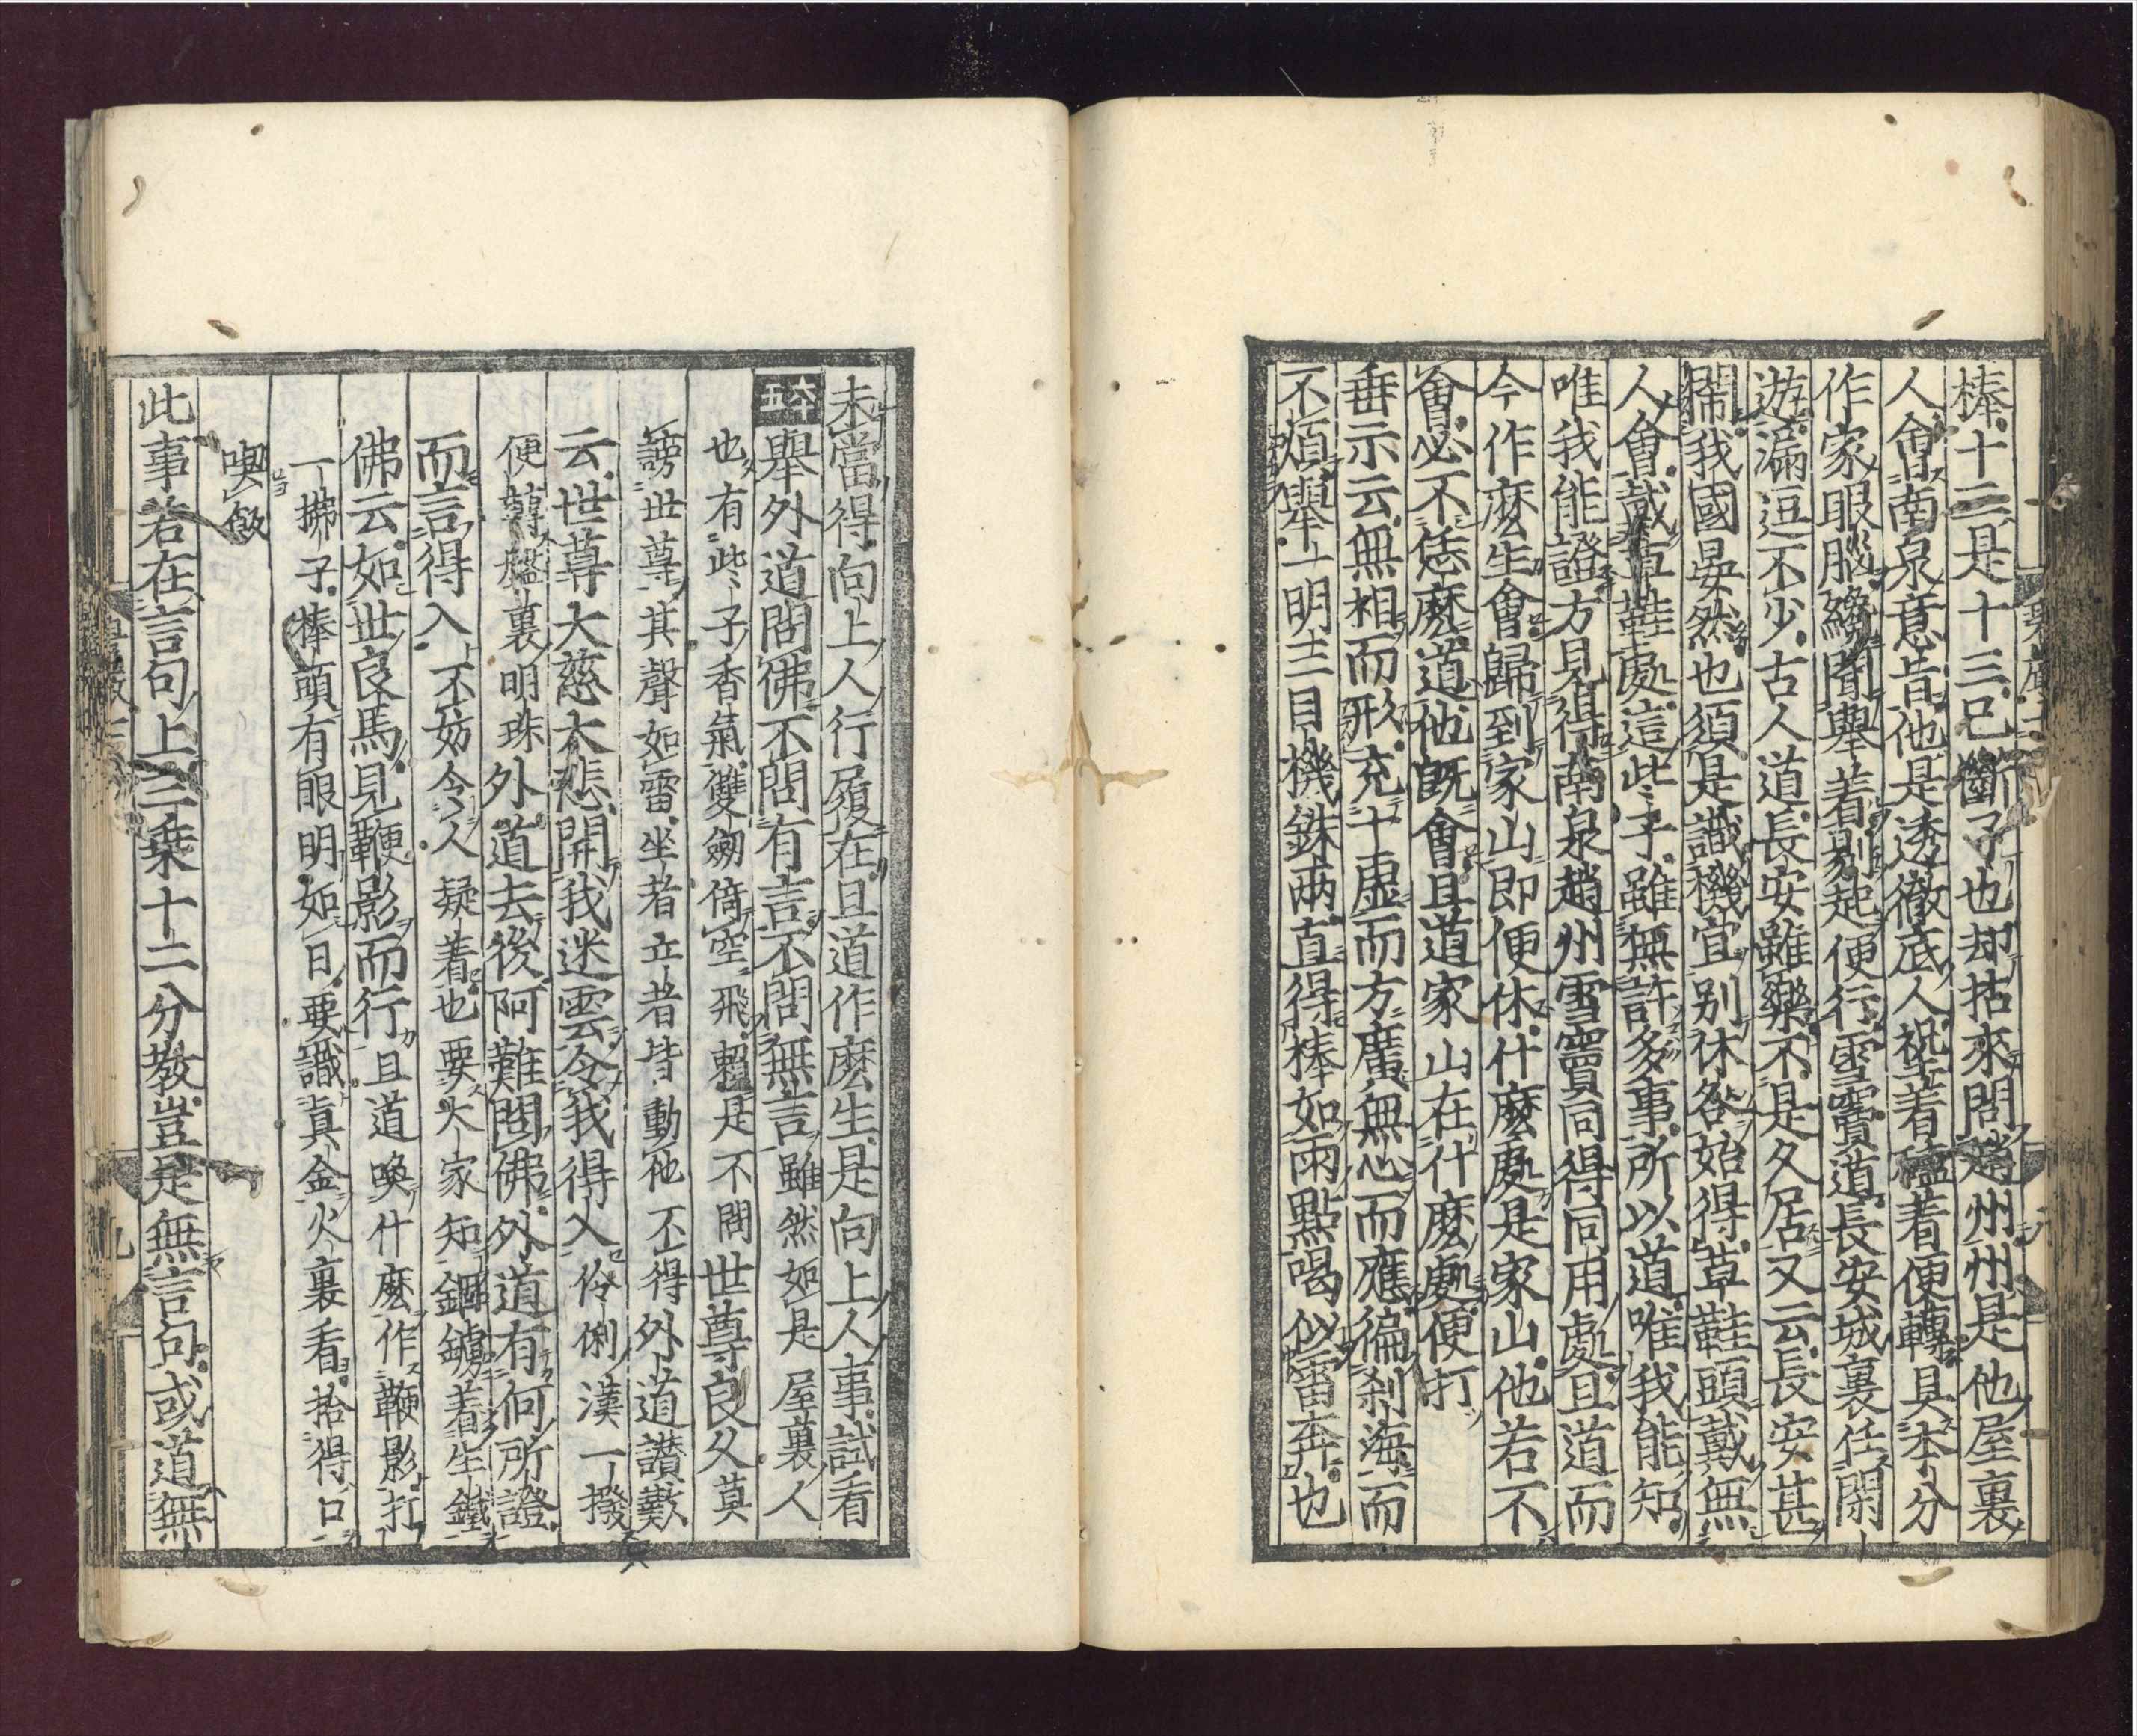 棒十二是十三已斷了也却拈來問趙州州是他屋裏
人會南泉意旨他是透徹底人𡎺着磕着便轉具本分
作家眼腦纔聞舉着剔起便行雪竇道長安城裏任閑
遊漏逗不少古人道長安雖樂不是久居又云長安甚
鬧我國晏然也須是識機宜别休咎始得草鞋頭戴無
人會戴草鞋處這些子雖無許多事所以道唯我能知
唯我能證方見得南泉趙州雪竇同得同用處且道而
今作麽生會歸到家山即便休什麽處是家山他若不
會必不恁麽道他既會且道家山在什麽處便打
垂示云無相而形充十虛而方廣無心而應徧刹海而
不煩舉一明三目機銖兩直得棒如雨點喝似雷奔也
未當得向上人行履在且道作麽生是向上人事試看
六十五 舉外道問佛不問有言不問無言雖然如是屋裏人
也有些子香氣雙劒倚空飛賴是不問世尊良久莫
謗世尊其聲如雷坐者立者皆動他不得外道讃歎
云世尊大慈大悲開我迷雲令我得入伶俐漢一撥
便轉盤裏明珠外道去後阿難問佛外道有何所證
而言得入不妨令人疑着也要大家知錮鏴着生鐵
佛云如世良馬見鞭影而行且道喚什麽作鞭影打
一拂子棒頭有眼明如日要識真金火裏看拾得口
喫飯
此事若在言句上三乗十二分教豈是無言句或道無